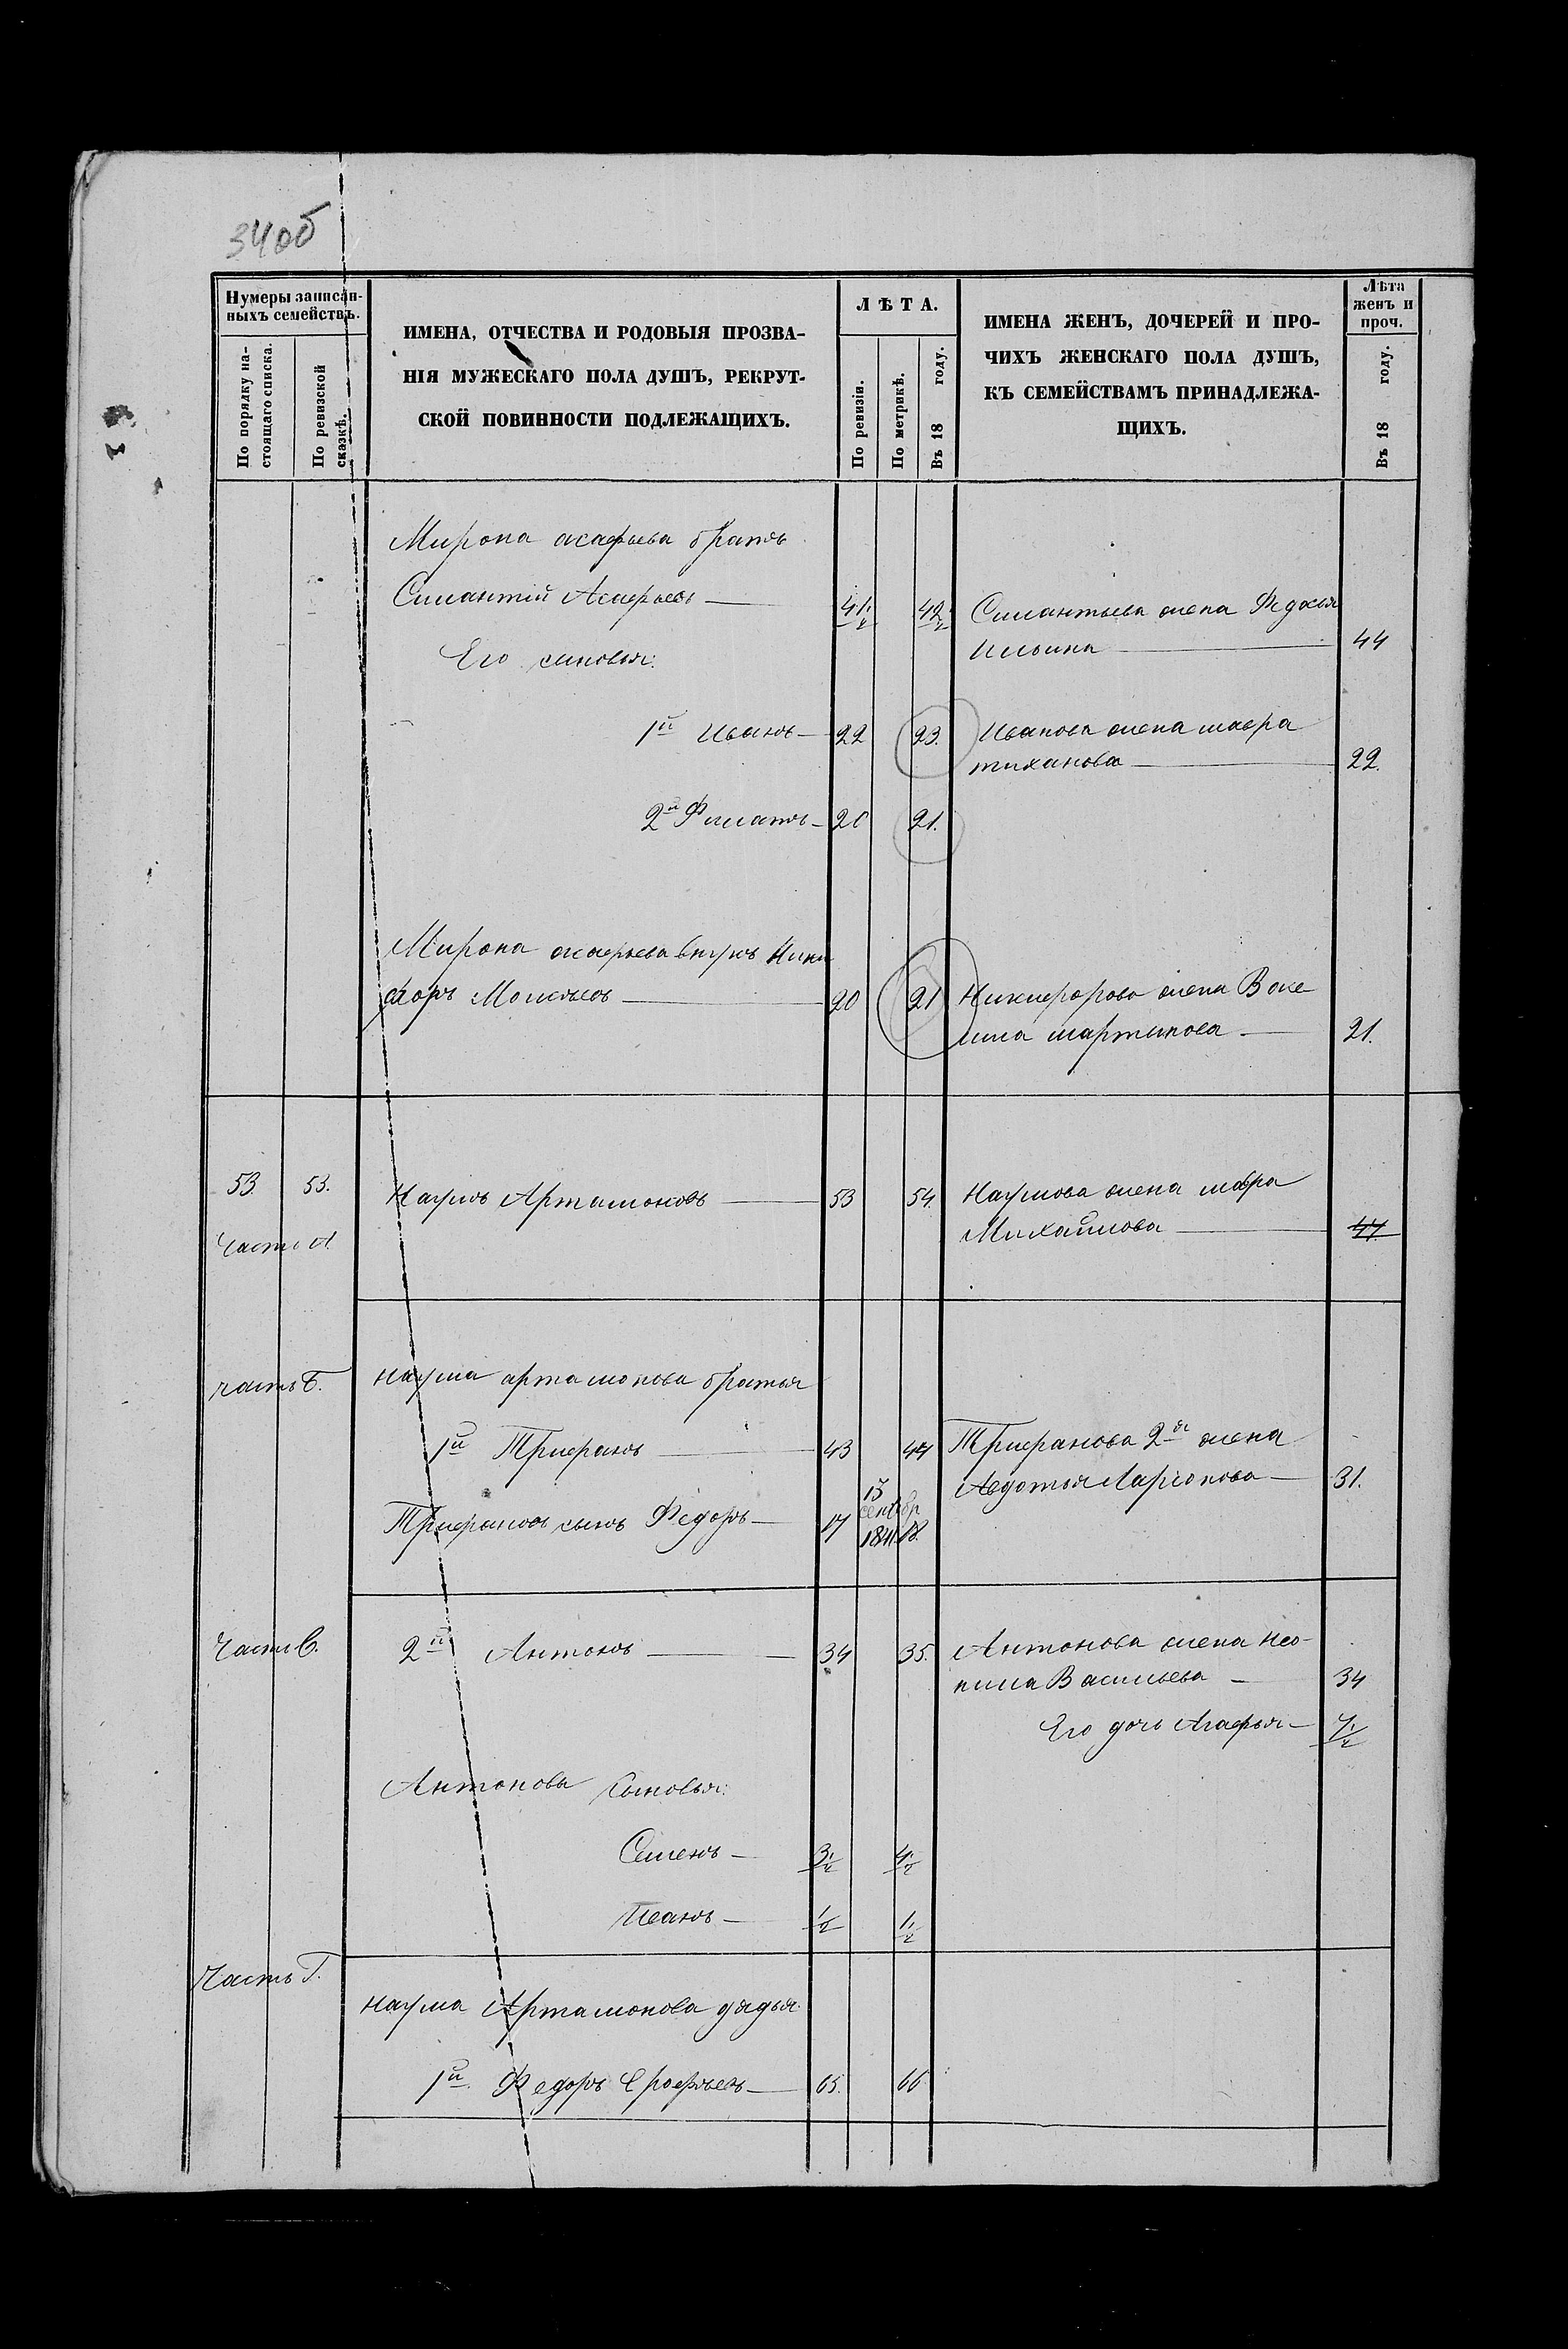 34об
Нумеры записан-
ныхъ семействъ.
По порядку на-
стоящаго списка.
По ревизской
сказкѣ.
ИМЕНА, ОТЧЕСТВА И РОДОВЫЯ ПРОЗВА-
НІЯ МУЖЕСКАГО ПОЛА ДУШЪ, РЕКРУТ-
СКОЙ ПОВИННОСТИ ПОДЛЕЖАЩИХЪ.
ЛѢТА.
По ревизіи.
По метрикѣ.
Въ 18 году.
ИМЕНА ЖЕНЪ, ДОЧЕРЕЙ И ПРО-
ЧИХЪ ЖЕНСКАГО ПОЛА ДУШЪ,
КЪ СЕМЕЙСТВАМЪ ПРИНАДЛЕЖА-
ЩИХЪ.
Лѣта
женъ и
проч.
Въ 18 году.
Мирона асафьева братъ
Силантій Асафьевъ 41½ 42½ Силантьева жена Федосья
Ильина 44
Его сыновья:
1й Иванъ 22 23. Иванова жена мавра
тиханова 22.
2й Филатъ 20 21.
Мирона асафьева внукъ Ники
форъ Моисѣевъ 20 21 Никифорова жена Васе
лиса мартынова 21.
53. 53. Наумъ Артамоновъ 53 54. Наумова жена мавра
Михайлова 47
Часть А
часть Б. наума артамонова братья
1й Трифанъ 43 44 Трифанова 2я жена
Авдотья Ларіонова 31.
Трифановъ сынъ Федоръ 17 15 сентбр 1841. 18.
Часть В. 2й Антонъ 34 35. Антонова жена нео-
нила Васильева 34
Его дочь Агафья 7½
Антонова сыновья:
Семенъ 3½ 4½
Иванъ ½ 1½
Часть Г.
наума Артамонова дядья
1й Федоръ Ерофѣевъ 65. 66